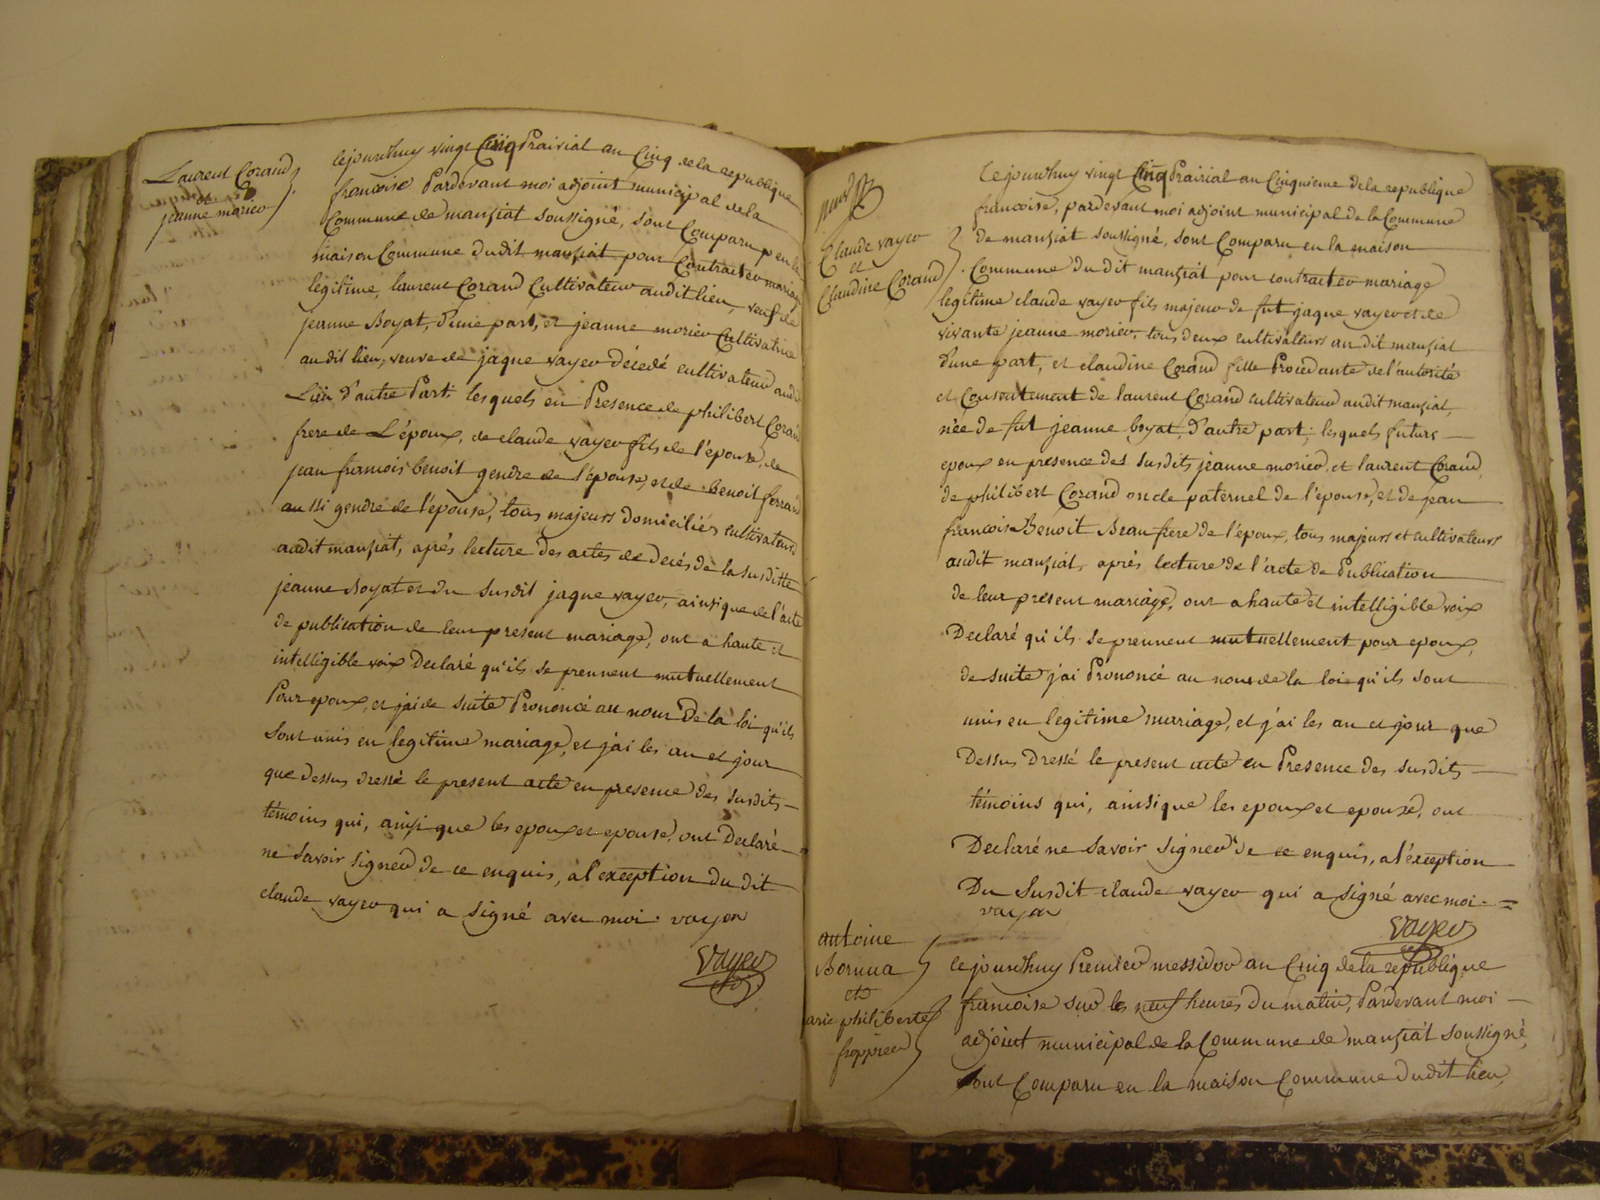 Laurent Corand
et
jeanne morier
Cejourd'huy vingt Cinq Prairial an Cinq de la republique
francoise Pardevant moi adjoint municipal de la
Commune de manziat soussigné, sont Comparu en la
maison Commune dudit manziat pour Contracter mariage
legitime, laurent Corand Cultivateur audit lieu, veuf de
jeanne Boyat, d'une part, et jeanne morier Cultivatrice
audit lieu, veuve de jaque vayer décedé cultivateur audit
Lieu d'autre Part. lesquels en Presence de philibert Corand
frere de L'époux, de claude vayer fils de l'épouse, de
jean francois benoit gendre de l'épouse, et de Benoit ferrand
aussi gendre de l'épouse, tous majeurs domiciliés cultivateurs
audit manziat, aprés lecture des actes de decés de la susditte
jeanne Boyat et du susdit jaque vayer, ainsique de l'acte
de publication de leur present mariage, ont a haute et
intelligible voix Declaré qu'ils se prennent mutuellement
Pour epoux, et j'ai de suite Prononcé au nom De la loi qu'ils
sont unis en legitime mariage, et j'ai les an et jour
que dessus dressé le present acte en presence des susdits
témoins qui, ainsi que les epoux et epouse, ont Declaré
ne savoir signer de ce enquis, à l'exception du dit
claude vayer qui a signé avec moi. vayer
Vayer
Claude vayer
et
Claudine Corand
Cejourd'huy vingt Cinq Prairial an Cinquieme de la republique
francoise, pardevant moi adjoint municipal de la Commune
de manziat soussigné, sont Comparu en la maison
Commune du dit manziat pour contracter mariage
legitime claude vayer fils majeur de fut jaque vayer et de
vivante jeanne morier, tous deux cultivateurs au dit manziat
d'une part, et claudine Corand fille Procedante de l'autorité
et Consentement de laurent Corand cultivateur audit manziat,
née de fut jeanne boyat, d'autre part; lesquels futurs
epoux en presence des susdits jeanne morier, et laurent Corand,
de philibert Corand oncle paternel de l'épouse, et de jean
francois Benoit Beau frere de l'époux, tous majeurs et cultivateurs
audit manziat, aprés lecture de l'acte de Publication
de leur present mariage, ont a haute et intelligible voix
Declaré qu'ils se prennent mutuellement pour epoux,
de suite j'ai Prononcé au nom de la loi qu'ils sont
unis en legitime mariage, et j'ai les an et jour que
Dessus Dressé le present acte en Presence des susdits
témoins qui, ainsique les epoux et epouse, ont
Declaré ne savoir signer de ce enquis, a l'éxception
Du susdit claude vayer qui a signé avec moi.
vayer
Vayer
antoine
Bornua
et
marie philiberte
Cejourd'huy Premier messidor an Cinq de la republique
francoise sur les neuf heures du matin, Pardevant moi
adjoint municipal de la Commune de manziat soussigné,
sont Comparu en la maison Commune dudit lieu,